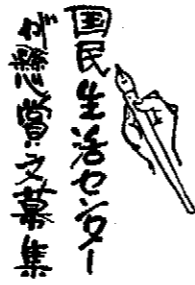 国民生活センター
が懸賞文募集